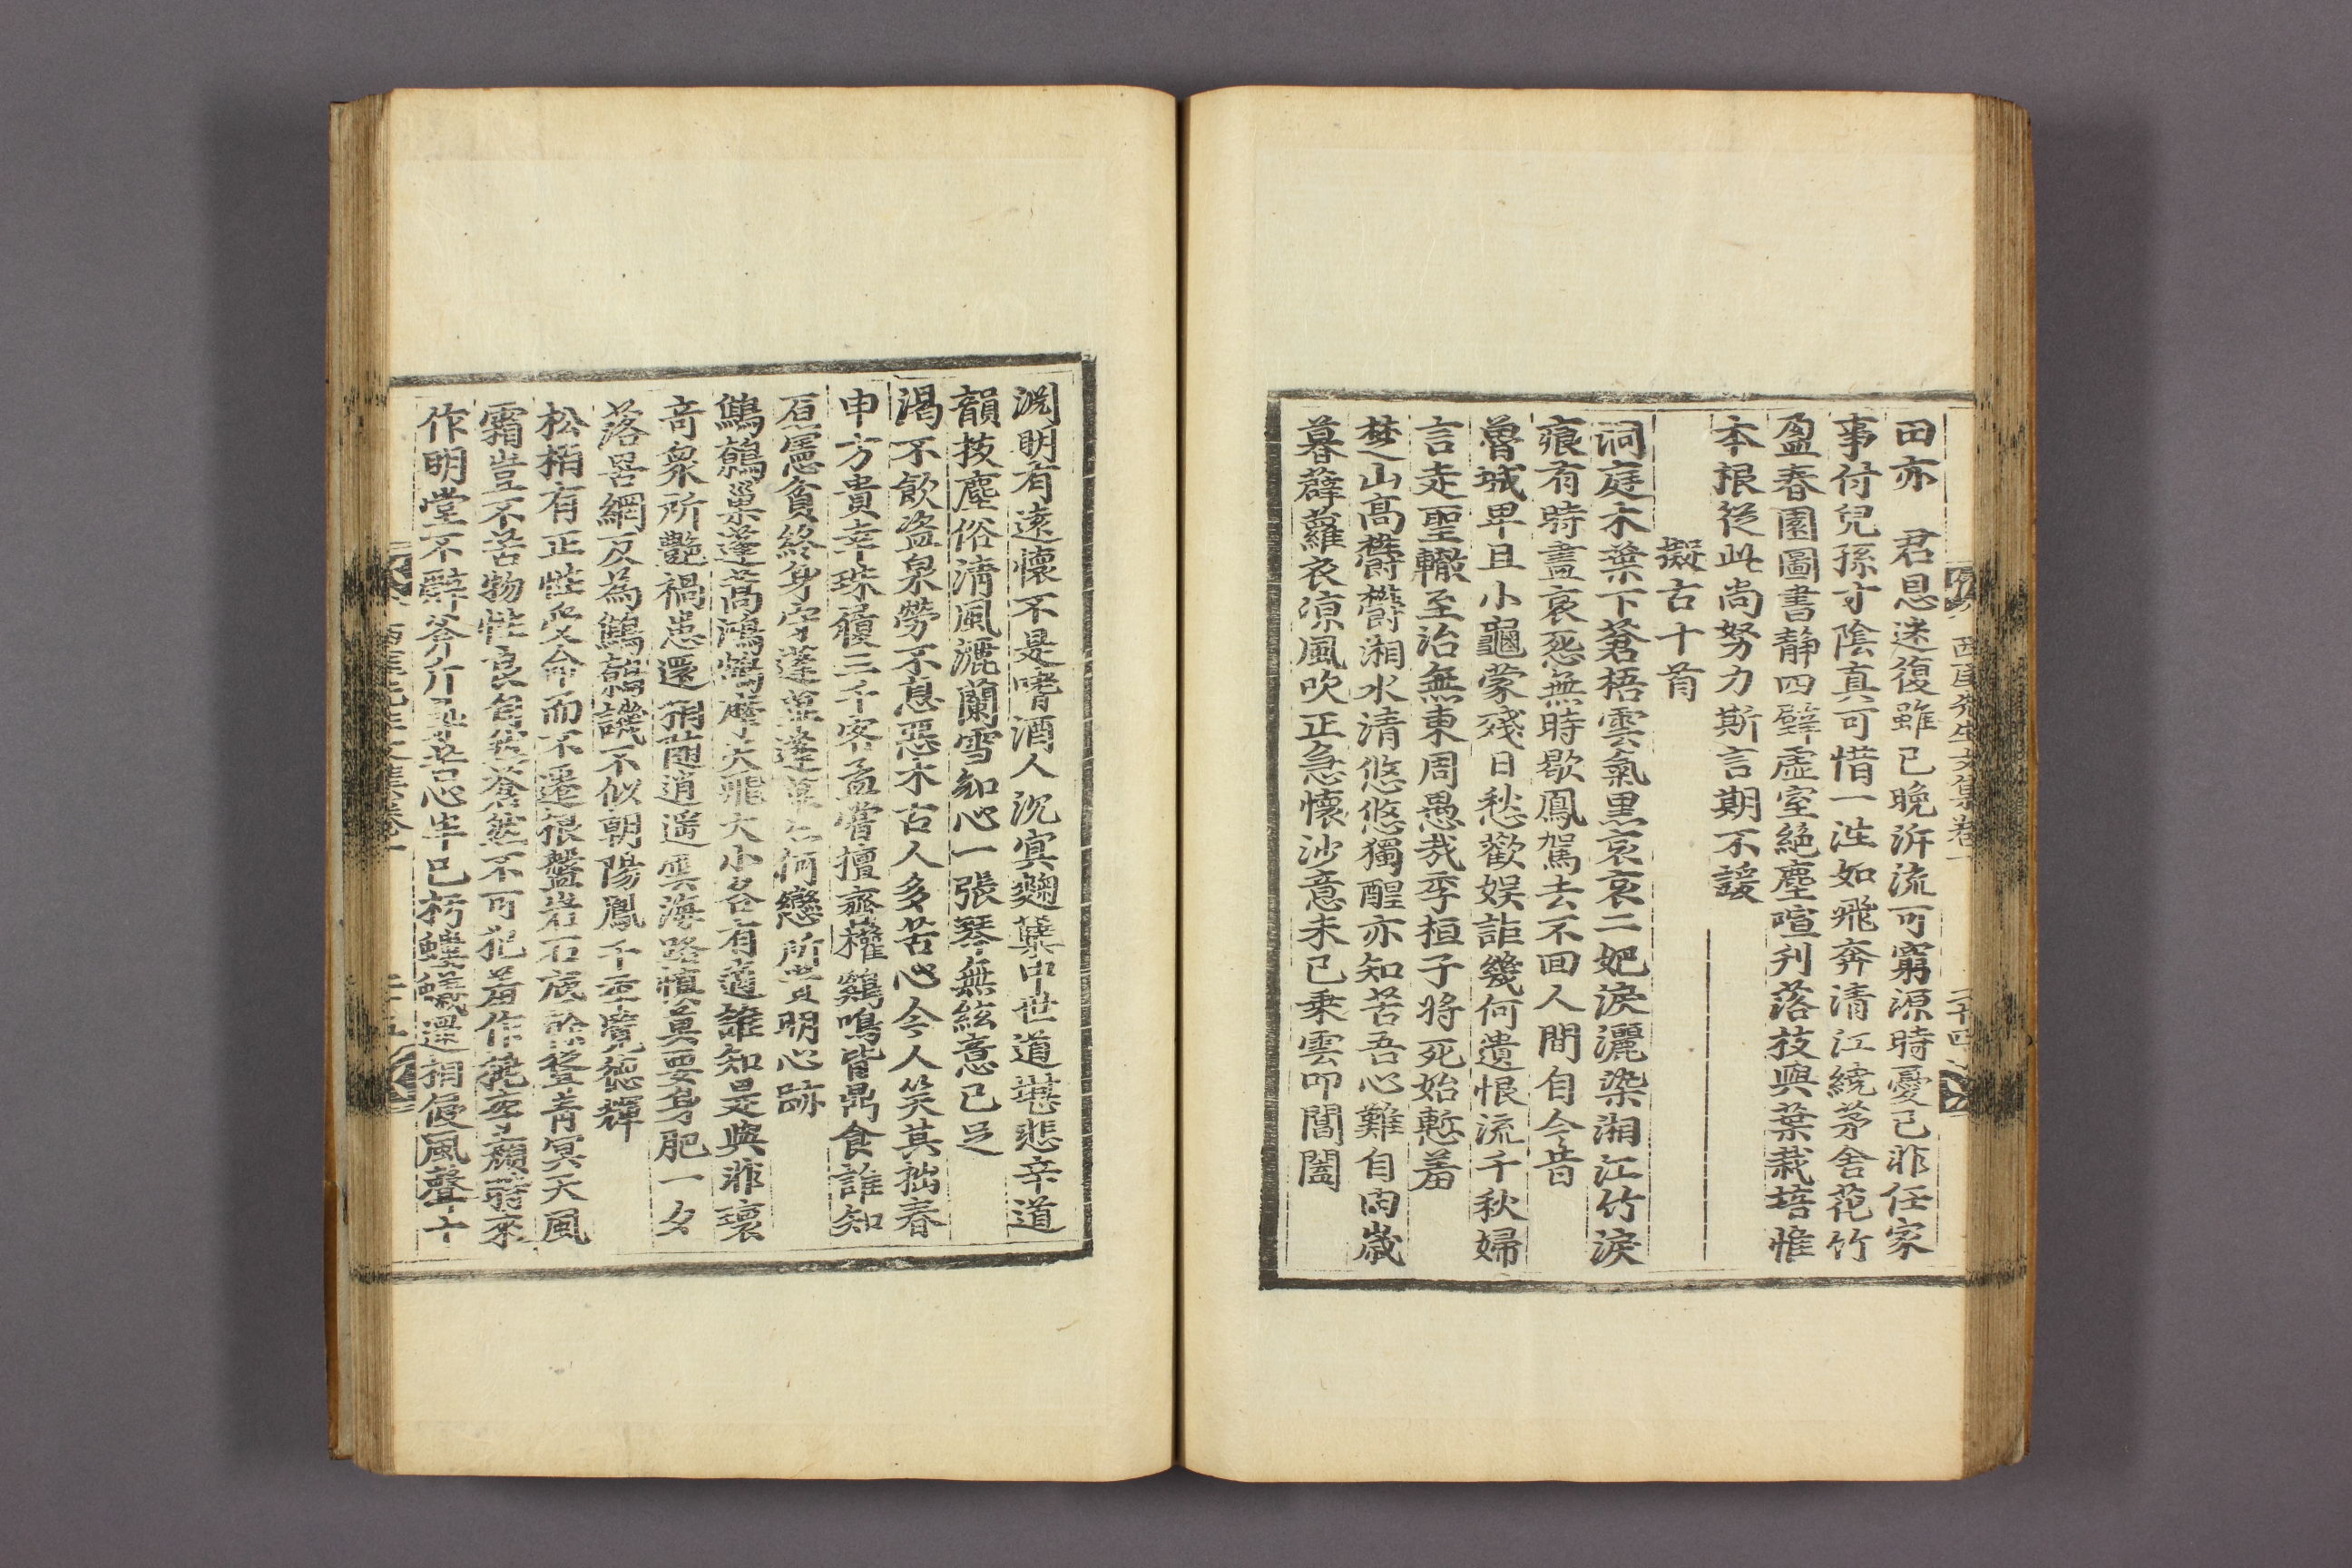 西厓先生文集卷一 二十四
田亦 君恩迷復雖已晚泝流可窮源時憂已非任家
事付兒孫寸陰眞可惜一泩如飛奔淸江繞茅舍花竹
盈春園圖書靜四壁虛室絶塵喧刋落技與葉栽培惟
本根從此尚努力斯言期不諼
擬古十首
洞庭木葉下蒼梧雲氣黑哀哀二妃淚灑染湘江竹淚
痕有時盡哀怨無時歇鳳駕去不回人間自今昔
魯城卑且小龜蒙殘日愁歡娱詎幾何遺恨流千秋婦
言走聖轍至治無東周愚哉季桓子將死始慙羞
楚山高欝欝湘水淸悠悠獨醒亦知苦吾心難自
歲
暮薜蘿衣凉風吹正急懷沙意未已乘雲叩閶闔
淵明有遠懷不是嗜酒人沉冥麴糵中世道堪悲辛道
韻技塵俗淸風灑蘭雪知心一張琴無絃意已足
渴不飮盗泉勞不息惡木古人多苦心今人笑其拙春
申方貴幸珠履三千客孟嘗擅齊權鷄鳴皆鼎食誰知
原憲貧終身守蓬蓽蓬蓽亦何戀所貴明心跡
鷦鷯巢蓬蒿鴻鵠摩天飛大小各有適誰知是與非瓌
奇衆所艷禍患還相隨逍遙雲海路愼莫要身肥一夕
落罟網反為鷦鷯譏不似朝陽鳳千仞覽德輝
松栢有正性受命而不遷根盤岩石底幹聳靑冥天風
霜豈不苦物性良自然蒼然不可犯羞作桃李顔時來
作明堂不辭斧斤尋苦心半已朽螻蟻還相侵風聲十
西厓先生文集卷一 二十五